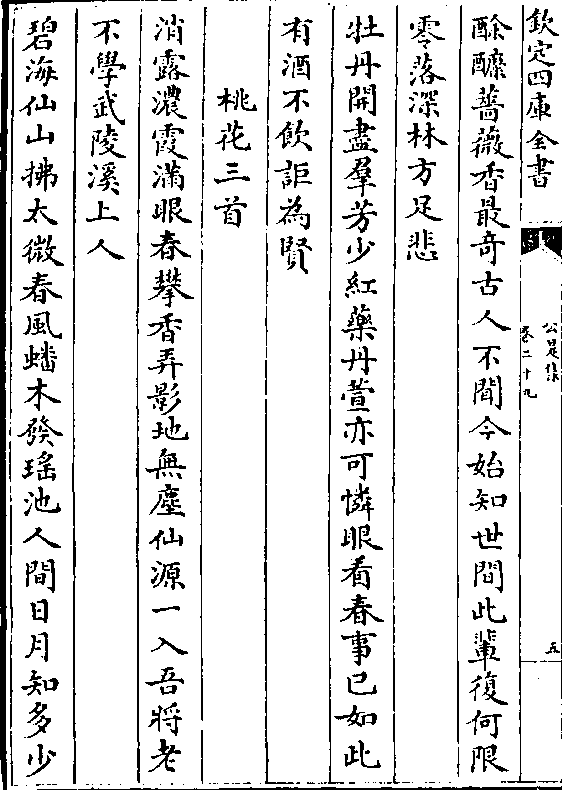 欽定四庫全書
公是集
卷二十九
五
酴醿薔薇香最奇古人不聞今始知世間此輩復何限
零落深林方足悲
牡丹開盡羣芳少紅藥丹萱亦可憐眼看春事已如此
有酒不飲詎為賢
桃花三首
消露濃霞滿眼春攀香弄影地無塵仙源一入吾將老
不學武陵溪上人
碧海仙山拂太微春風蟠木發瑤池人間日月知多少